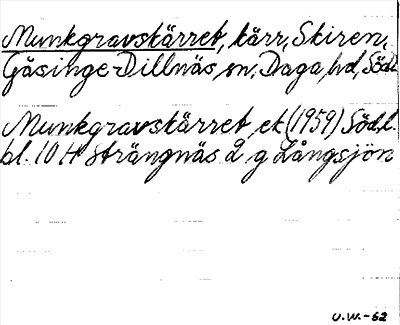 Munkgravskärret, kärr, Skiren,
Gåsinge-Dillnäs sn, Daga hd, Södl.
Munkgravskärret ek (1959) Södl.
bl. 10 H Strängnäs 2 g Långsjön
U.W.-62